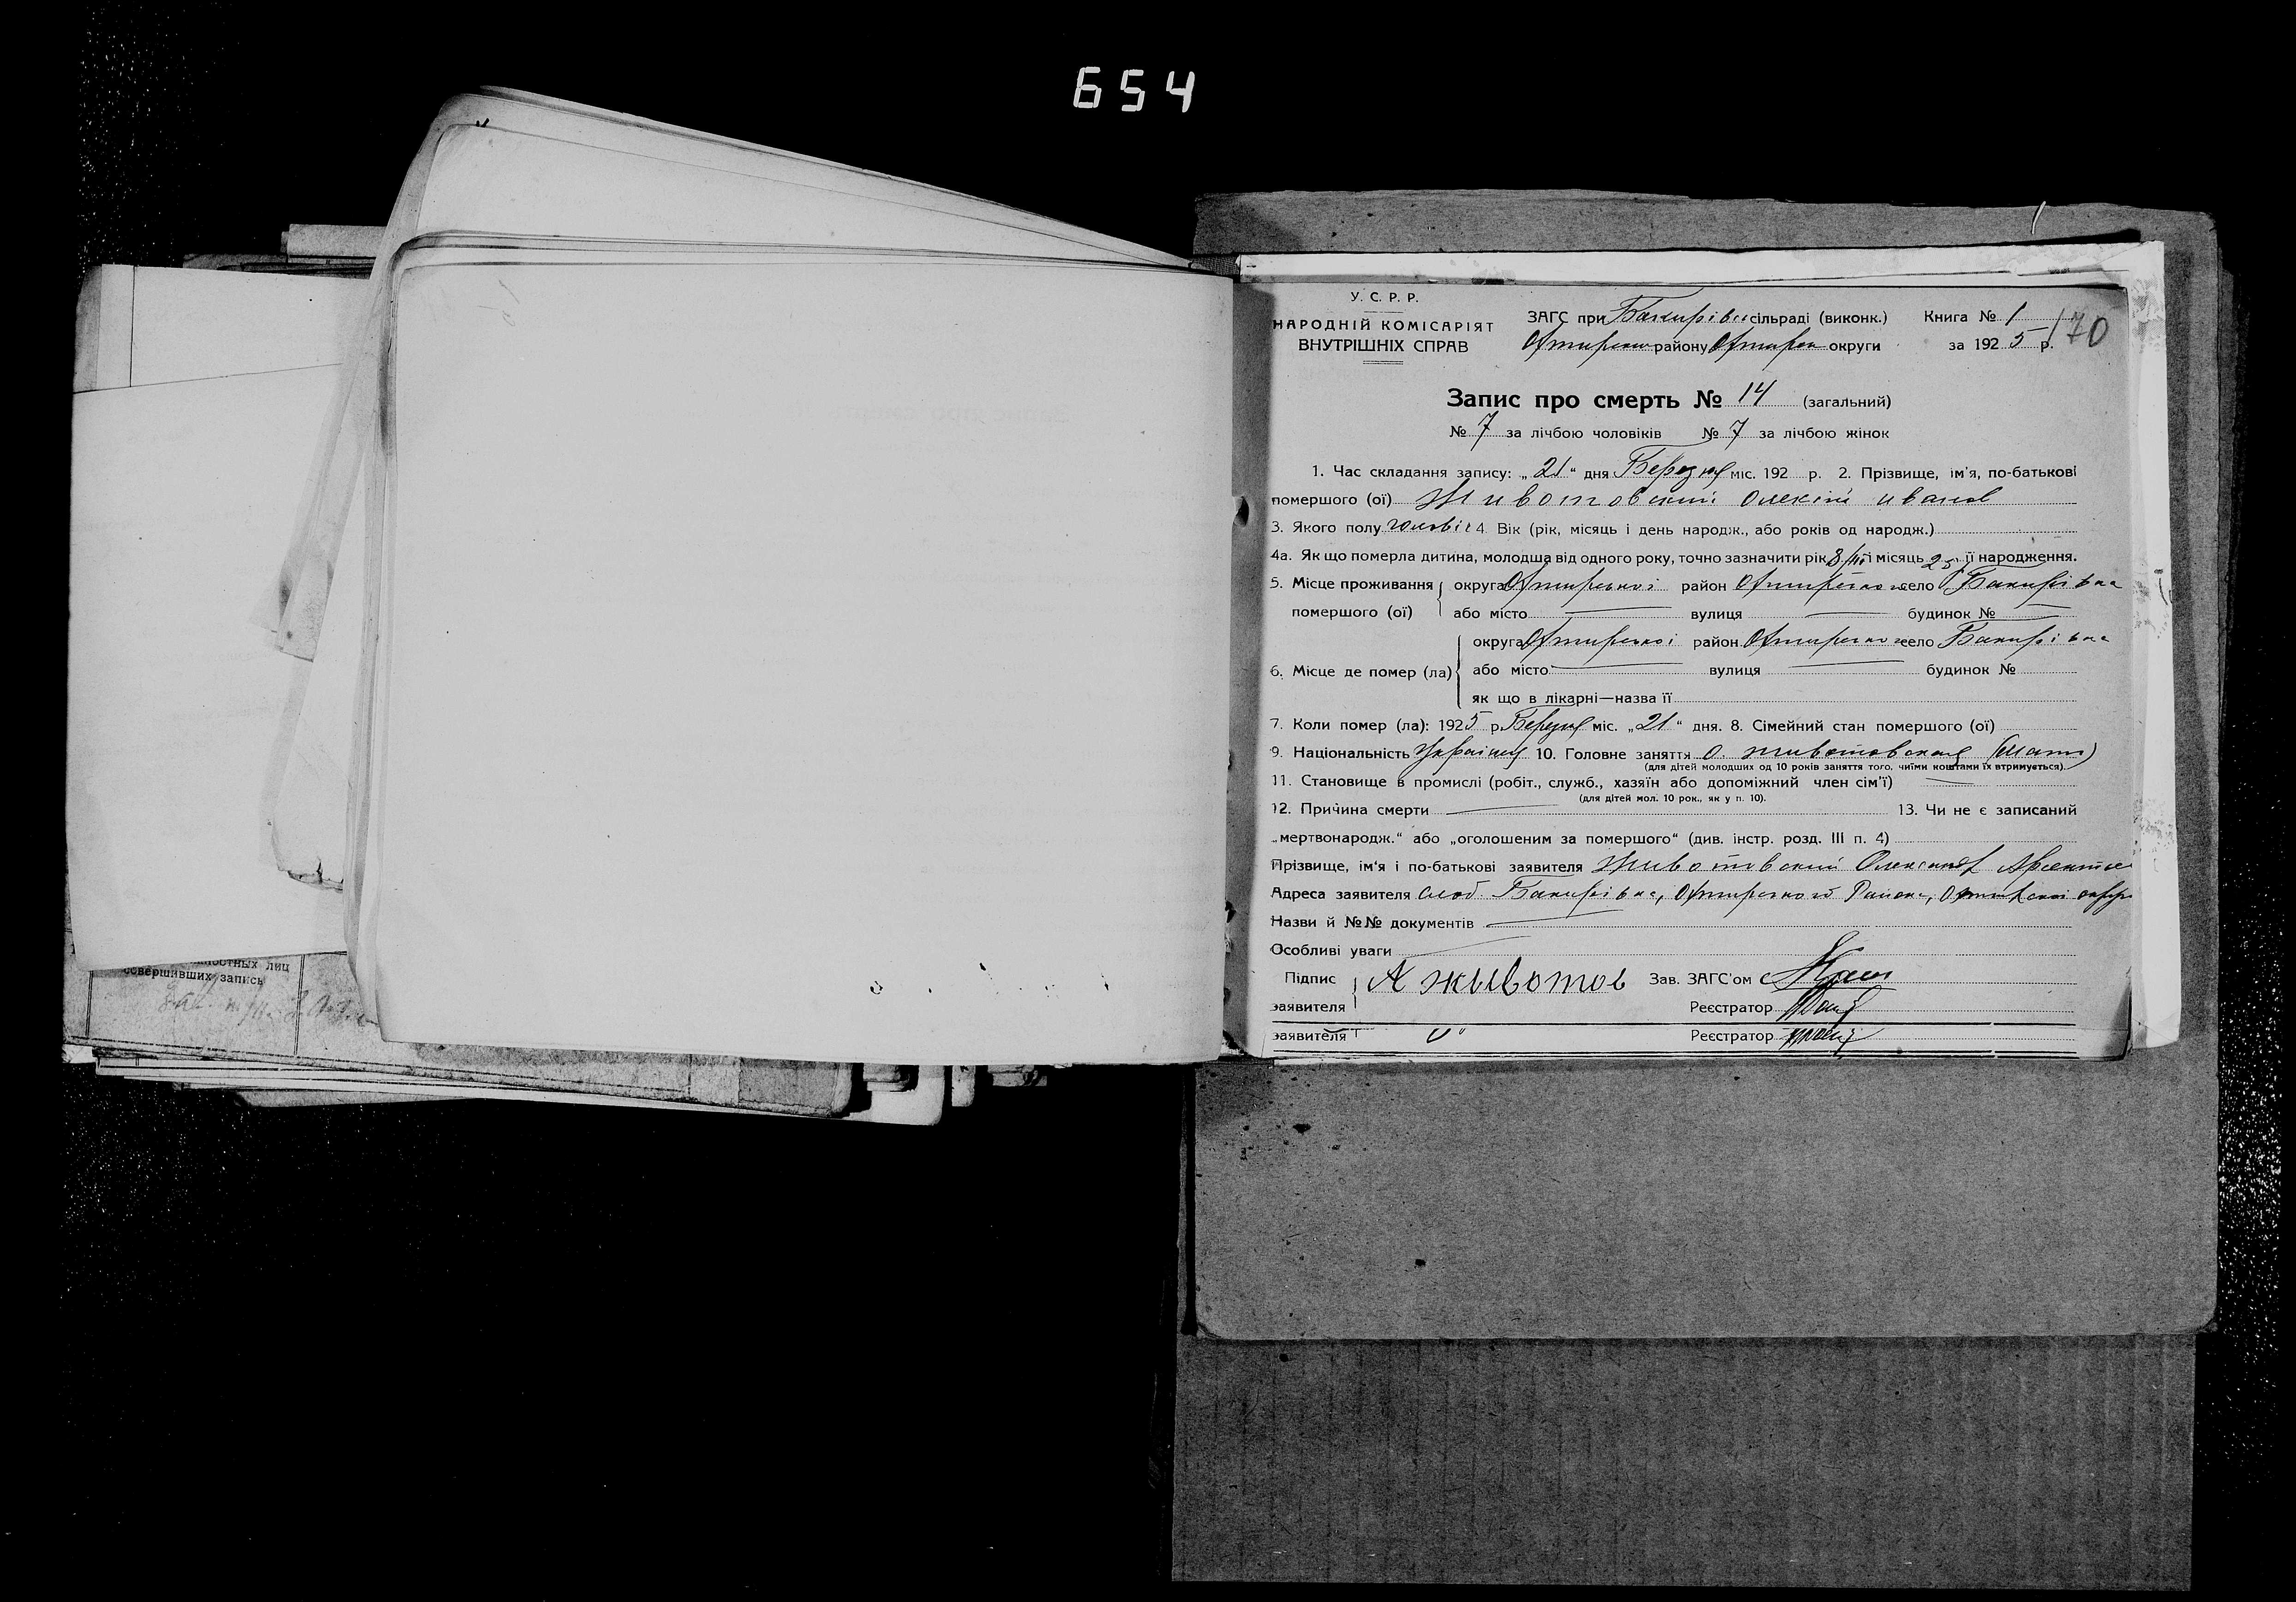 654
У. С. Р. Р.
НАРОДНІЙ КОМІСАРІЯТ
ВНУТРІШНІХ СПРАВ
ЗАГС при Бакирівс сільраді (виконк.) Книга № 1
району округи за 1925 р.
170
Запис про смерть № 14 (загальний)
№ 7 за лічбою чоловіків № 7 за лічбою жінок
1. Час складання запису: „21“ дня Березня міс. 192 р. 2. Прізвище, ім'я, по-батькові
помершого (ої) Животовский Олексій иванов
3. Якого полу 4. Вік (рік, місяць і день народж., або років од народж.)
4а. Як що померла дитина, молодша від одного року, точно зазначити рік 8/III і місяць 25 її народження.
5. Місце проживання помершого (ої) округа Охтирської район Охтирського село Бакирівка
або місто вулиця будинок №
6. Місце де помер (ла) округа Охтирської район Охтирського село Бакирівка
або місто вулиця будинок №
як що в лікарні—назва її
7. Коли помер (ла): 1925 р. Березня міс. „21“ дня. 8. Сімейний стан помершого (ої)
9. Національність 10. Головне заняття О. животовская (мати)
(для дітей молодших од 10 років заняття того, чиїми коштами їх втримується).
11. Становище в промислі (робіт., служб., хазяїн або допоміжний член сім'ї)
(для дітей мол. 10 рок., як у п. 10).
12. Причина смерти 13. Чи не є записаний
„мертвонародж.“ або „оголошеним за помершого“ (див. інстр. розд. III п. 4)
Прізвище, ім'я і по-батькові заявителя Животовский
Адреса заявителя слоб. Бакирівка, Охтирського Району,
Назви й №№ документів
Особливі уваги
Підпис заявителя А животов Зав. ЗАГС'ом
Реєстратор
заявителя Реєстратор
лиц
совершивших запись